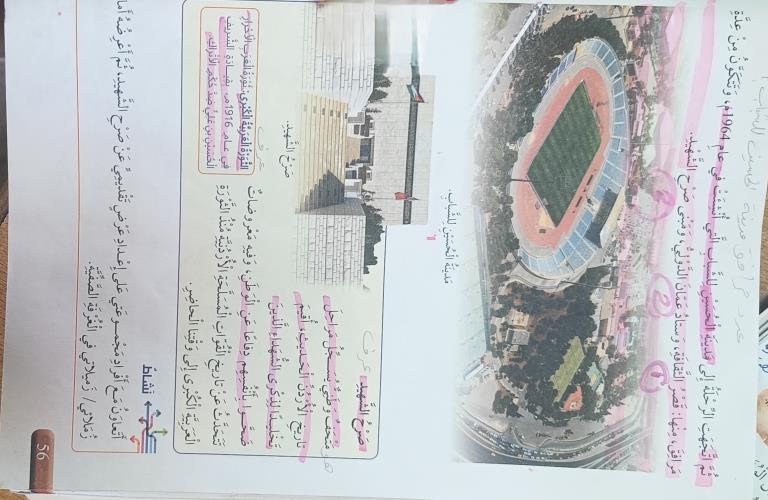 ثُمَّ اتَّجَهَتِ الرِّحْلَةُ إِلَى مَدينَةِ الْحُسَيْنِ لِلشَّبابِ الَّتي أُنْشِئَتْ في عامِ 1964م، وَتَتَكَوَّنُ مِنْ عِدَّةِ
مَرافِقَ، مِنْها: قَصْرُ الثَّقافَةِ، وَسْتادُ عَمّانَ الدَّوْلِيُّ، وَمَبْنى صَرْحِ الشَّهيدِ.
مَدينَةُ الْحُسَيْنِ لِلشَّبابِ.
صَرْحُ الشَّهيدِ:
مُتْحَفٌ وَطَنِيٌّ يُسَجِّلُ مَراحِلَ
تاريخِ الْأُرْدُنِّ الْحَديثِ، أُقيمَ
تَخْليدًا لِذِكْرى الشُّهَداءِ الَّذينَ
ضَحَّوْا بِأَنْفُسِهِمْ دِفاعًا عَنِ الْوَطَنِ، وَفيهِ مَعْروضاتٌ
تَتَحَدَّثُ عَنْ تاريخِ الْقُوّاتِ الْمُسَلَّحَةِ الْأُرْدُنِيَّةِ مُنْذُ الثَّوْرَةِ
الْعَرَبِيَّةِ الْكُبْرى إِلى وَقْتِنا الْحاضِرِ.
صَرْحُ الشَّهيدِ.
الثَّوْرَةُ الْعَرَبِيَّةُ الْكُبْرى: ثَوْرَةُ الْعَرَبِ الْأَحْرارِ
في عامِ 1916م، بِقِيادَةِ الشَّريفِ
الْحُسَيْنِ بْنِ عَلِيٍّ ضِدَّ حُكْمِ الْأَتْراكِ.
نَشاطٌ
أَتَعاوَنُ مَعَ أَفْرادِ مَجْموعَتي عَلى إِعْدادِ عَرْضٍ تَقْديمِيٍّ عَنْ صَرْحِ الشَّهيدِ، ثُمَّ أَعْرِضُهُ أَمامَ
زُمَلائي/ زَميلاتي في الْغُرْفَةِ الصَّفِّيَّةِ.
56